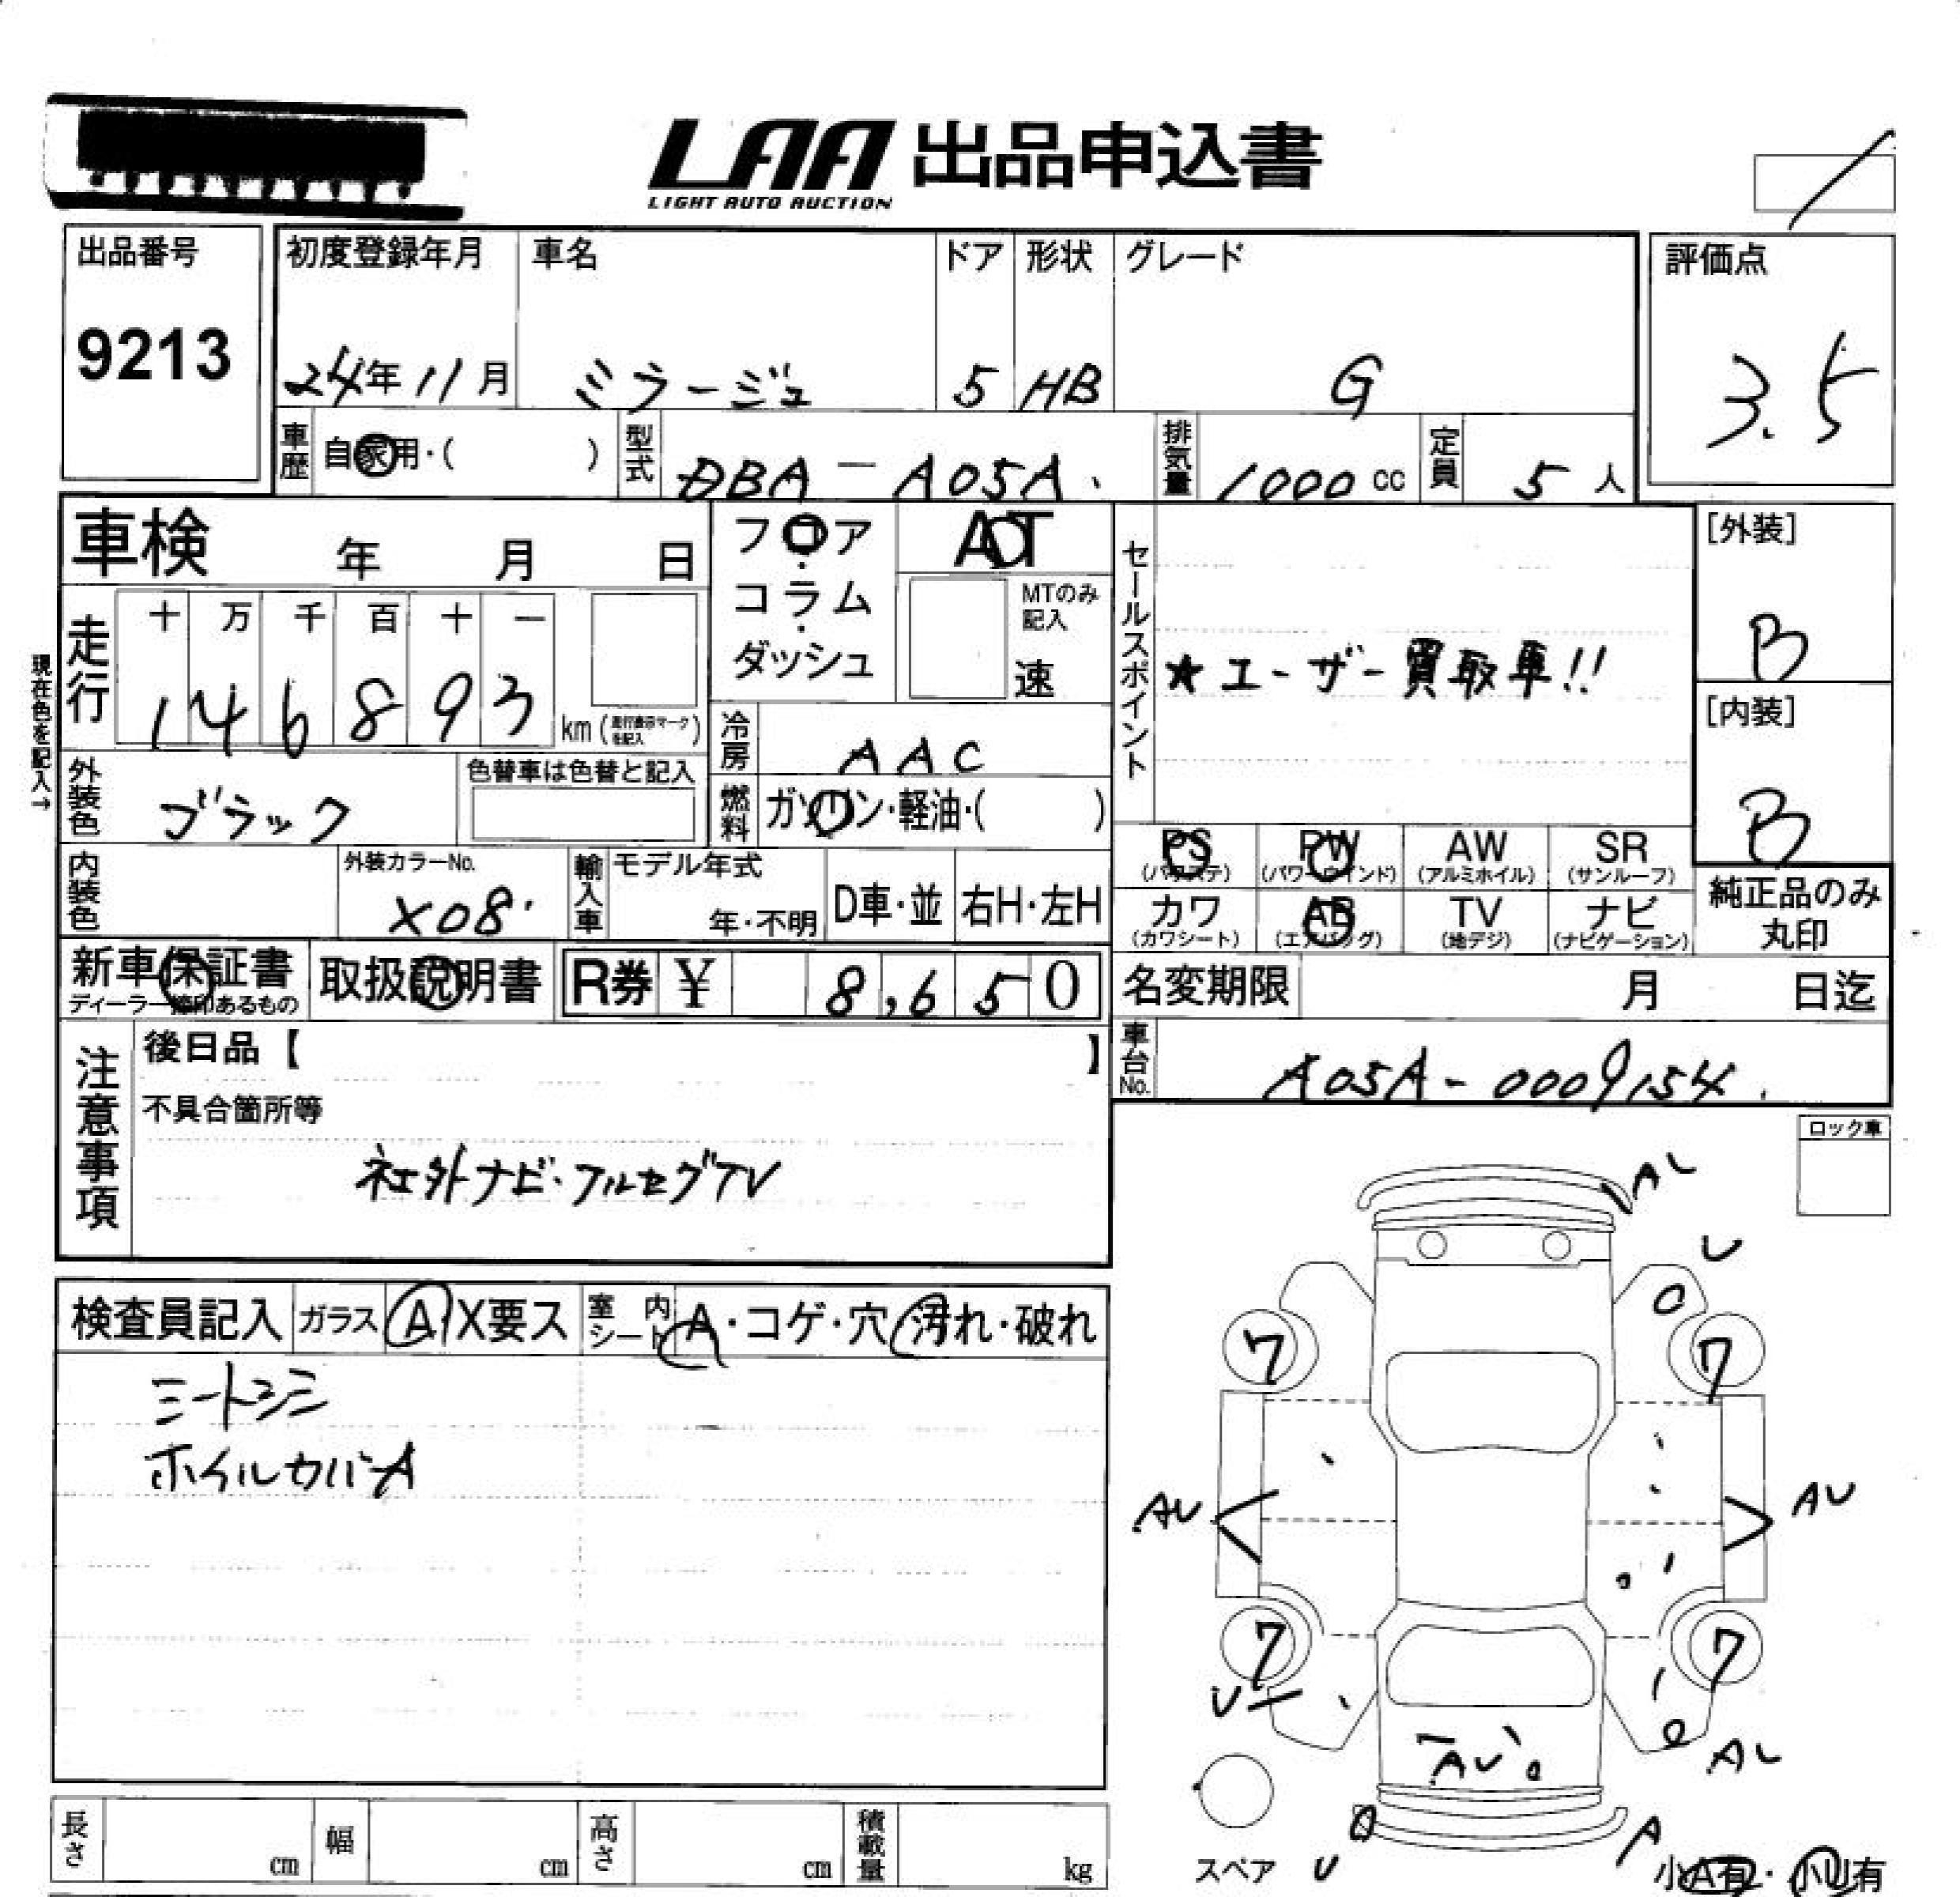 LAA 出品申込書
LIGHT AUTO AUCTION
出品番号
9213
初度登録年月 車名 ドア 形状 グレード
24年11月 ミラージュ 5 HB G
評価点
3.5
車歴 自家用・( ) 型式 DBA-A05A 排気量 1000cc 定員 5人
車検 年 月 日
フロア・コラム・ダッシュ
AT
MTのみ記入
速
現在色を記入→
走行 十 万 千 百 十 一
146893 km (走行表示マークを記入)
冷房 AAC
燃料 ガソリン・軽油・( )
セールスポイント
★ユーザー買取車!!
[外装]
B
[内装]
B
外装色 ブラック 色替車は色替と記入
内装色 外装カラーNo. X08 輸入車 モデル年式 年・不明 D車・並 右H・左H
PS (パワステ) PW (パワーウインド) AW (アルミホイル) SR (サンルーフ)
カワ (カワシート) AB (エアバッグ) TV (地デジ) ナビ (ナビゲーション)
純正品のみ丸印
新車保証書 ディーラー捺印あるもの 取扱説明書 R券 ¥ 8,650
名変期限 月 日迄
車台No. A05A-0009154
注意事項
後日品【 】
不具合箇所等
社外ナビ・フルセグTV
ロック車
検査員記入 ガラス A・X要ス 室内シート A・コゲ・穴・汚れ・破れ
シートシミ
ホイルカバーA
AU
U
7 7
AU AU
7 7
U
AU
AU
A
スペア U
小A有・小U有
長さ cm 幅 cm 高さ cm 積載量 kg